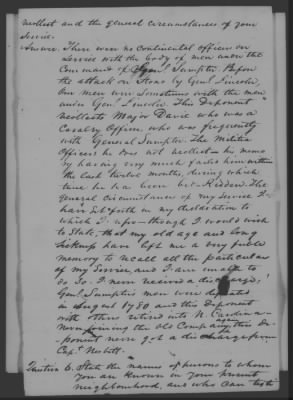 recollect and the general circumstances of your
Service.
Answer. There were no Continental officers on
Service with the body of men under the
Command of Genl. Sumpter. Before
the attack on Stono by Genl. Lincoln,
Our men were Sometimes with the men
under Genl. Lincoln. This Deponent
recollects Major Davie who was a
Cavalry Officer, who was frequently
with General Sumpter. The Militia
Officers he does not recollect his memo
ry having very much failed him within
the last twelve months, during which
time he has been bed-Ridden. The
General circumstances of my Service I
have Set forth in my declaration to
which I refer though I would wish
to State, that my old age and long
Sickness have left me a very feeble
memory to recall all the particulars
of my Service and I am unable to
do So. I never received a discharge.
Genl. Sumpters men were defeated
August 1780 and this Deponent
with others retired into N. Carolina
never joining the old Company again this De-
ponent never got a discharge from
Capt. Nesbitt.
Question 6. State the names of persons to whom
you are known in your present
neighbourhood, and who can testi